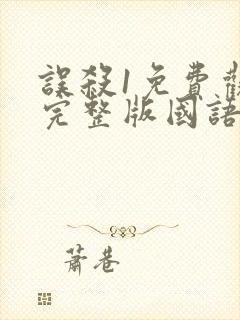 誤殺1免費觀
完整版國語
蕭巷